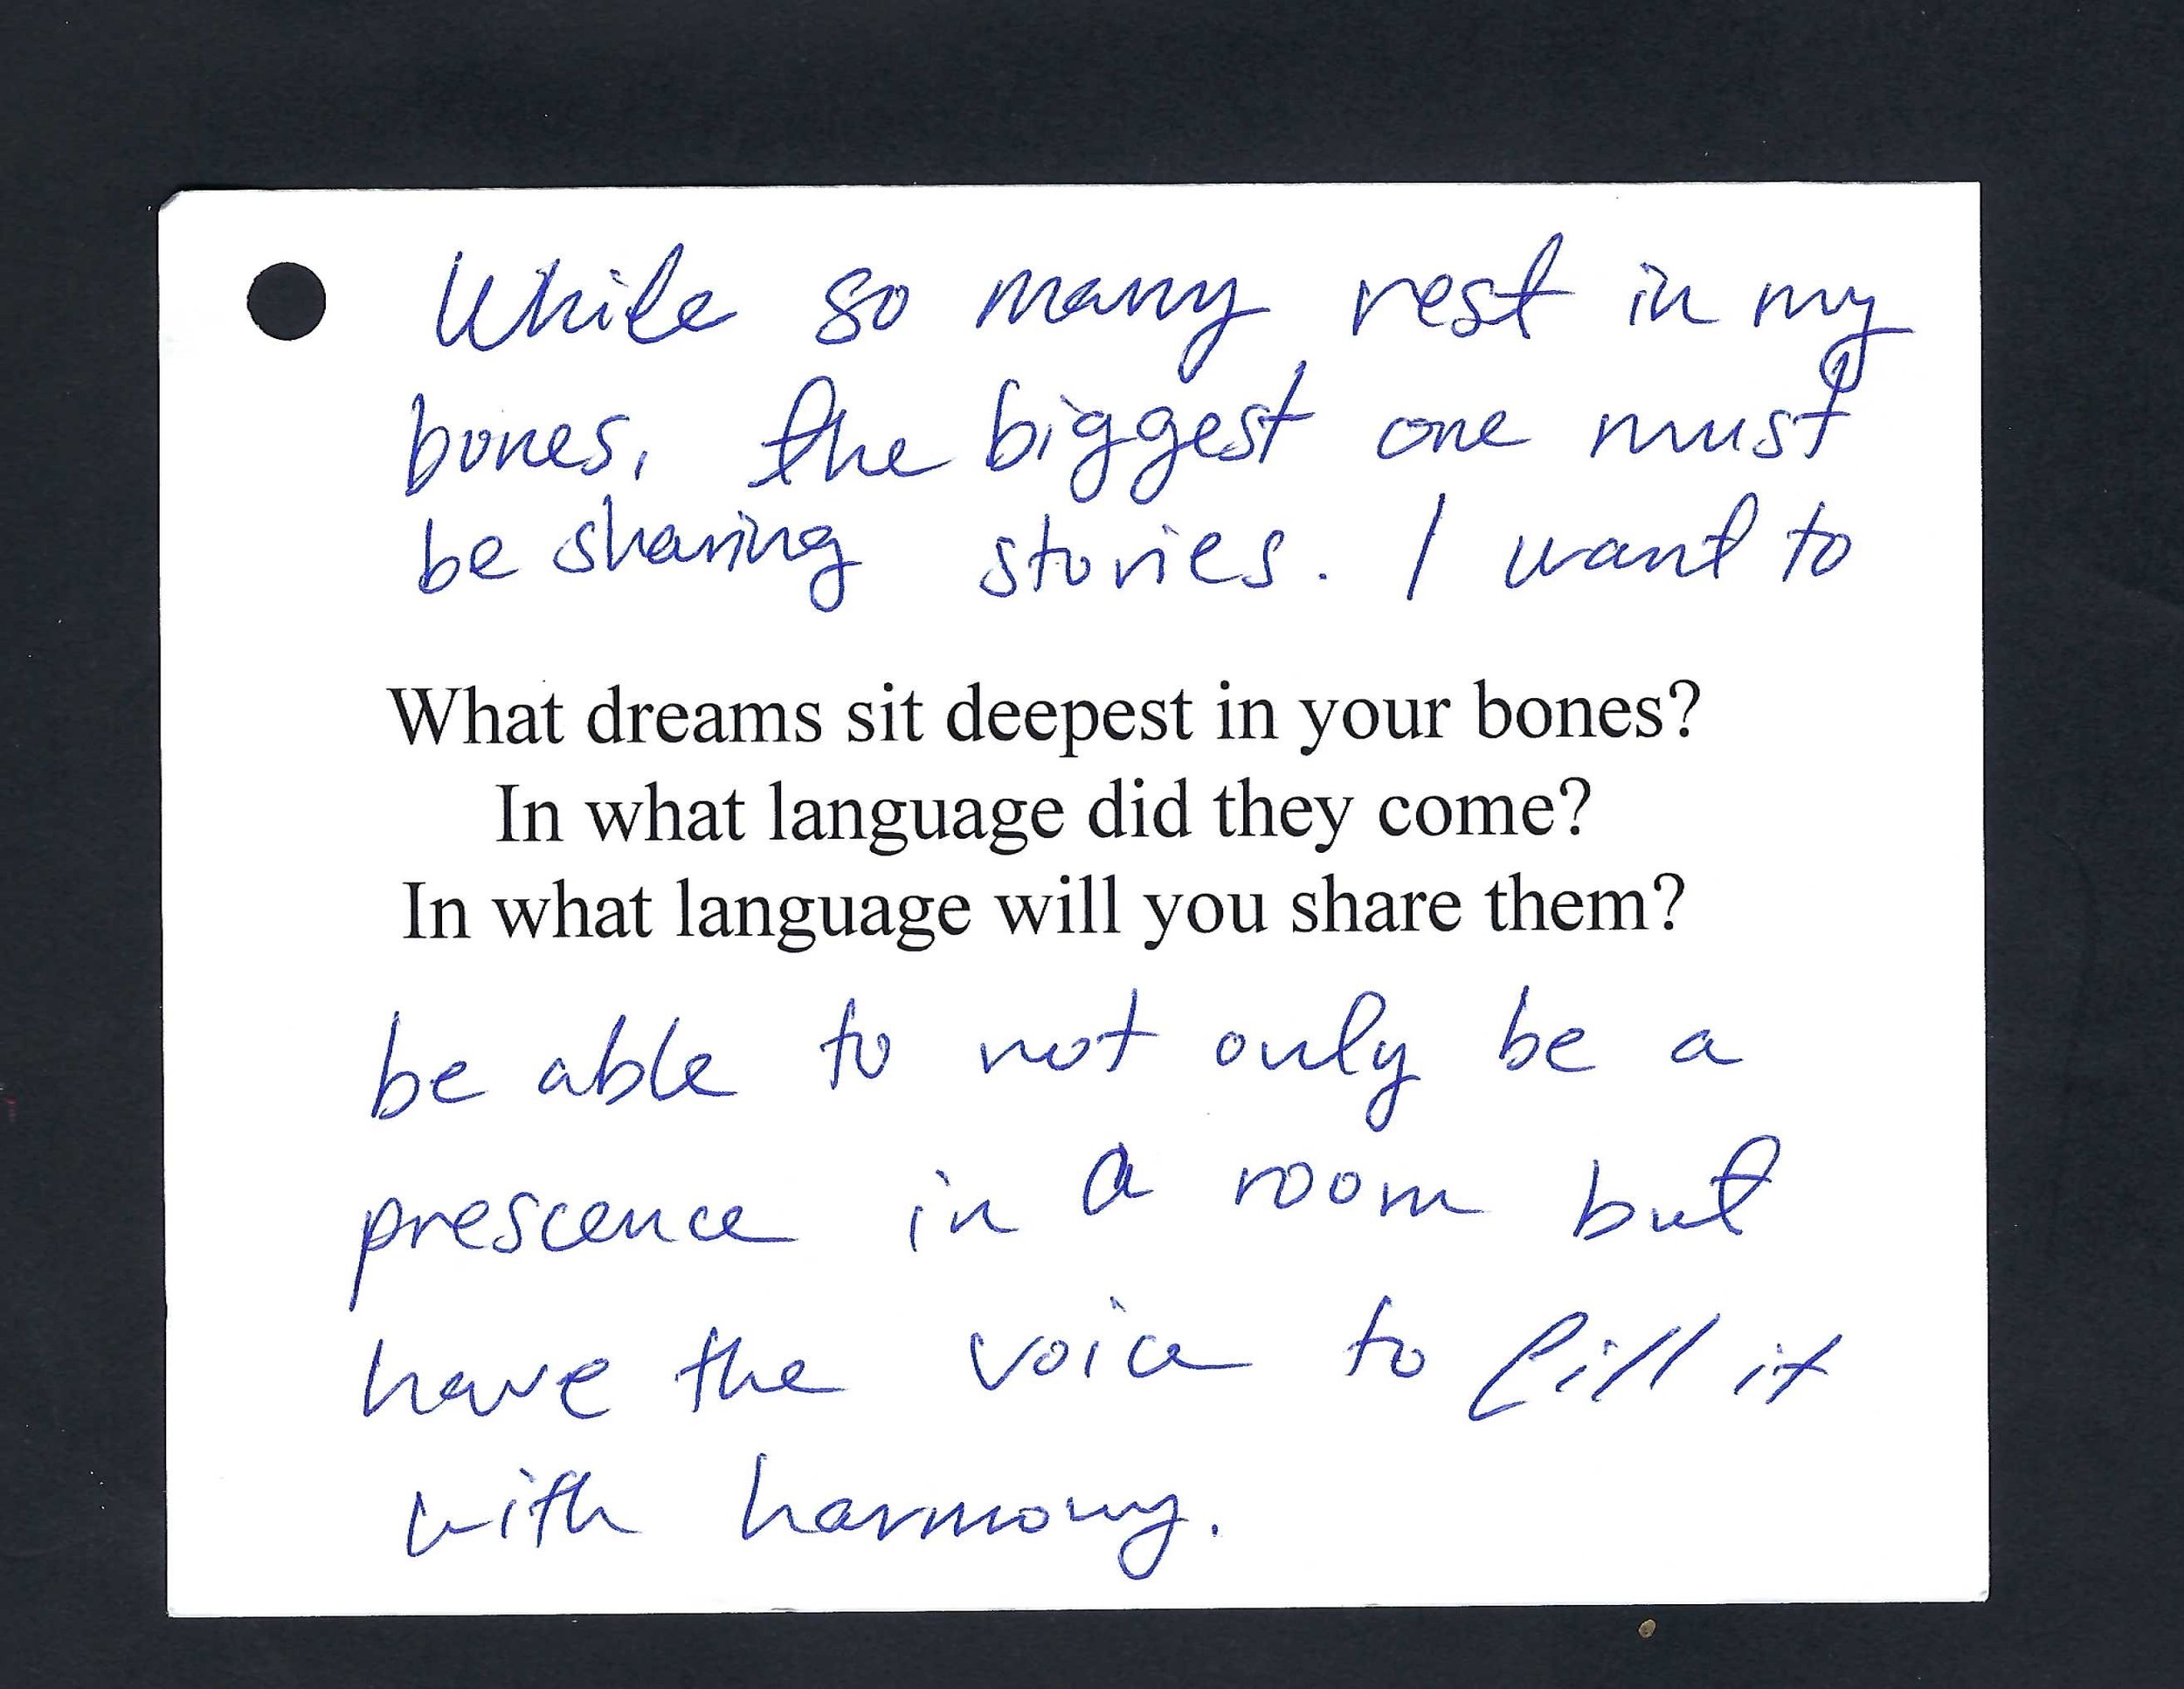 While so many rest in my
bones, the biggest one must
be sharing stories. I want to
What dreams sit deepest in your bones?
In what language did they come?
In what language will you share them?
be able to not only be a
prescence in a room but
have the voice to fill it
with harmony.